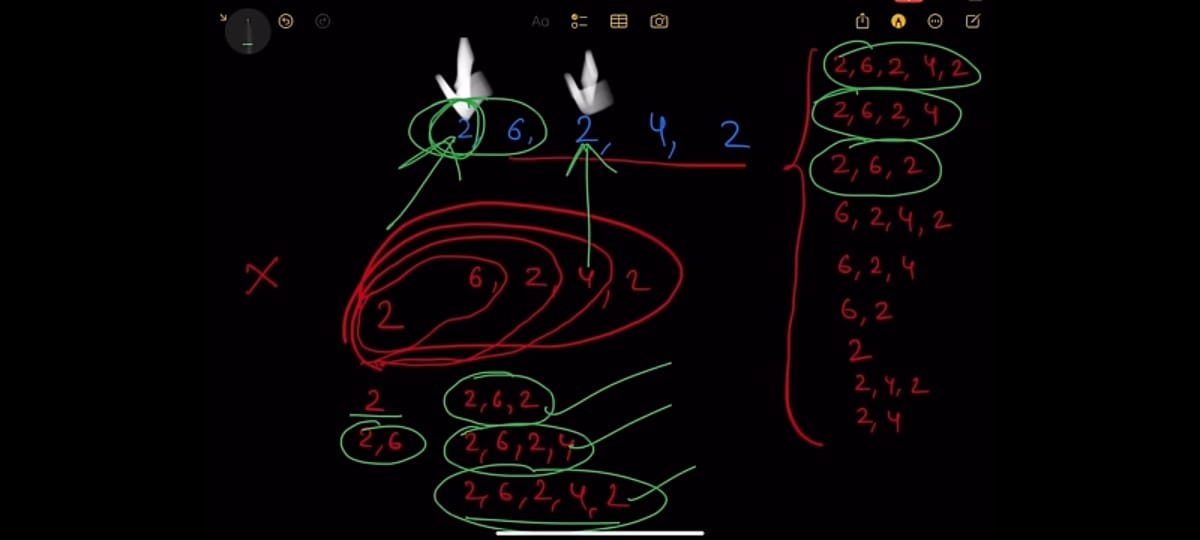 Aa
2, 6, 2, 4, 2
X
2 6, 2, 4, 2
2
2,6
2,6,2
2,6,2,4
2,6,2,4,2
2,6,2,4,2
2,6,2,4
2,6,2
6,2,4,2
6,2,4
6,2
2
2,4,2
2,4